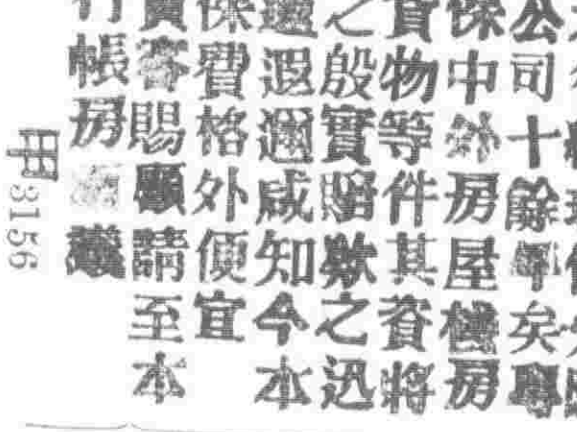 公司十餘年矣專
保中外房屋機房
資物等件其資將
之殷實賠款之迅
遐邇咸知今本
保費格外便宜
賁客賜顧請至本
行帳房面議
甲3156